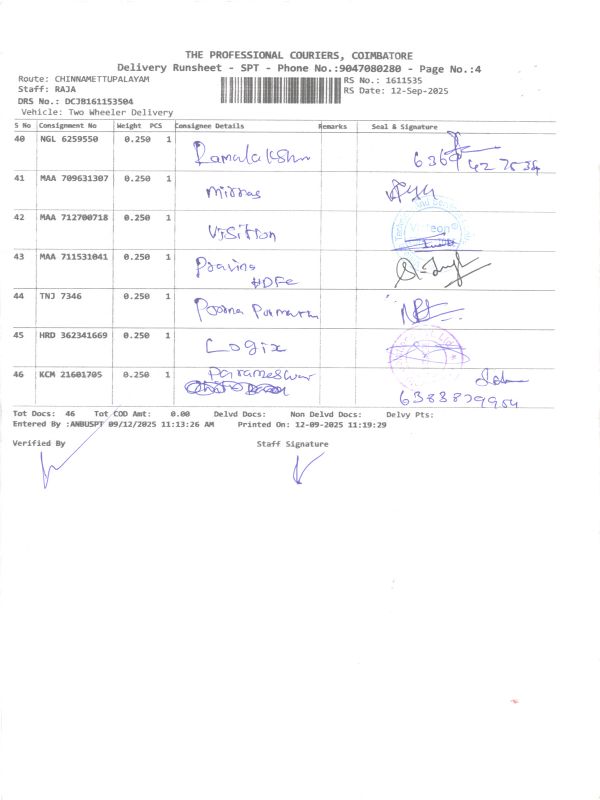 THE PROFESSIONAL COURIERS, COIMBATORE
Delivery Runsheet - SPT - Phone No.:9047080280 - Page No.:4
Route: CHINNAMETTUPALAYAM
RS No.: 1611535
Staff: RAJA
RS Date: 12-Sep-2025
DRS No.: DCJB161153504
Vehicle: Two Wheeler Delivery
S No Consignment No Weight PCS Consignee Details Remarks Seal & Signature
40 NGL 6259550 0.250 1 Ramalakshm
41 MAA 709631307 0.250 1
42 MAA 712700718 0.250 1 Visition
43 MAA 711531041 0.250 1 Pravina
HDFC
44 TNJ 7346 0.250 1 Poorna
45 HRD 362341669 0.250 1 Logix
46 KCM 21601705 0.250 1 Parameswar
6383879954
Tot Docs: 46 Tot COD Amt: 0.00 Delvd Docs: Non Delvd Docs: Delvy Pts:
Entered By :ANBUSPT 09/12/2025 11:13:26 AM Printed On: 12-09-2025 11:19:29
Verified By Staff Signature